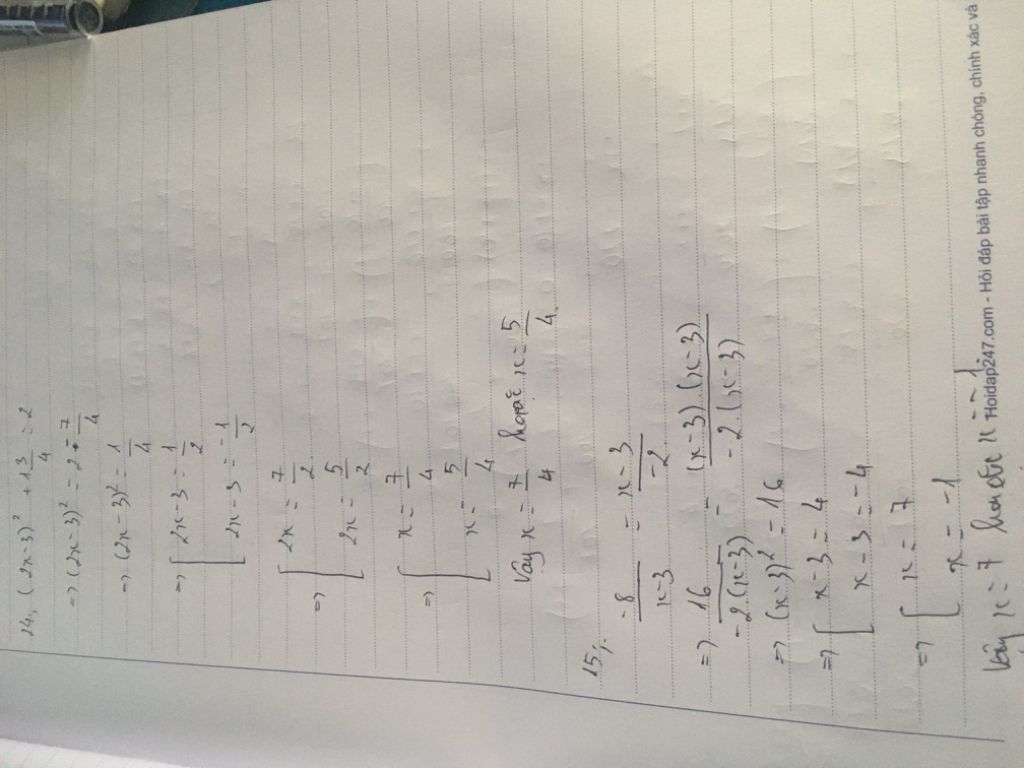 14, (2x-3)² + 1 3/4 = 2
=> (2x-3)² = 2 - 7/4
=> (2x-3)² = 1/4
=> [ 2x-3 = 1/2
[ 2x-3 = -1/2
=> [ 2x = 7/2
[ 2x = 5/2
=> [ x = 7/4
[ x = 5/4
Vậy x = 7/4 hoặc x = 5/4
15,
-8/x-3 = x-3/-2
=> 16/-2(x-3) = (x-3).(x-3)/-2(x-3)
=> (x-3)² = 16
=> [ x-3 = 4
[ x-3 = -4
=> [ x = 7
[ x = -1
Vậy x = 7 hoặc x = -1
Hoidap247.com - Hỏi đáp bài tập nhanh chóng, chính xác và